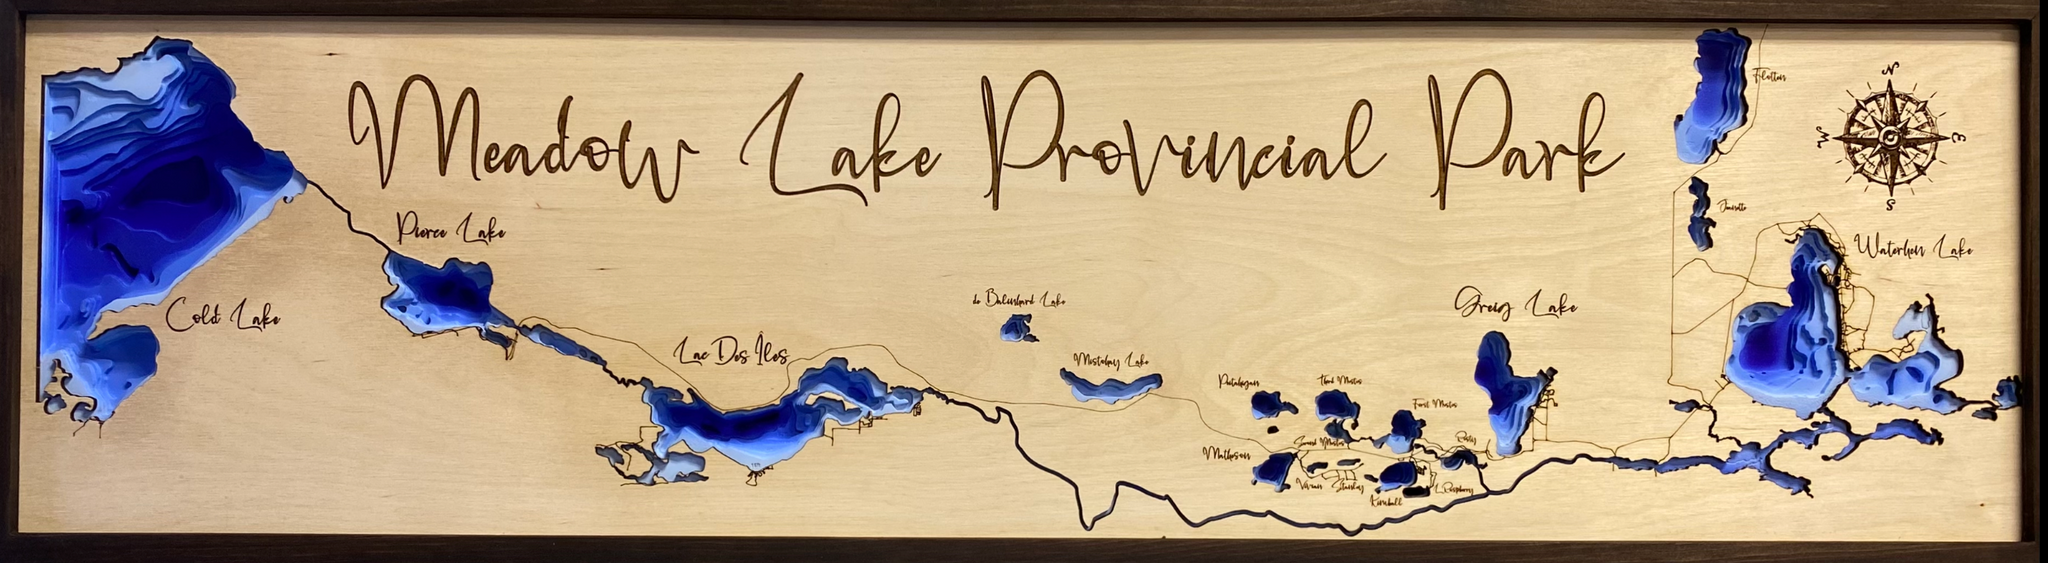 Meadow Lake Provincial Park
N
W E
S
Flotten
Jeannette
Pierce Lake
Waterhen Lake
Cold Lake
de Balinhard Lake
Greig Lake
Lac Des Îles
Mistohay Lake
Third Mustus
First Mustus
Second Mustus
Rusty
Matheson
Vivian
Stanley
L. Raspberry
Kimball